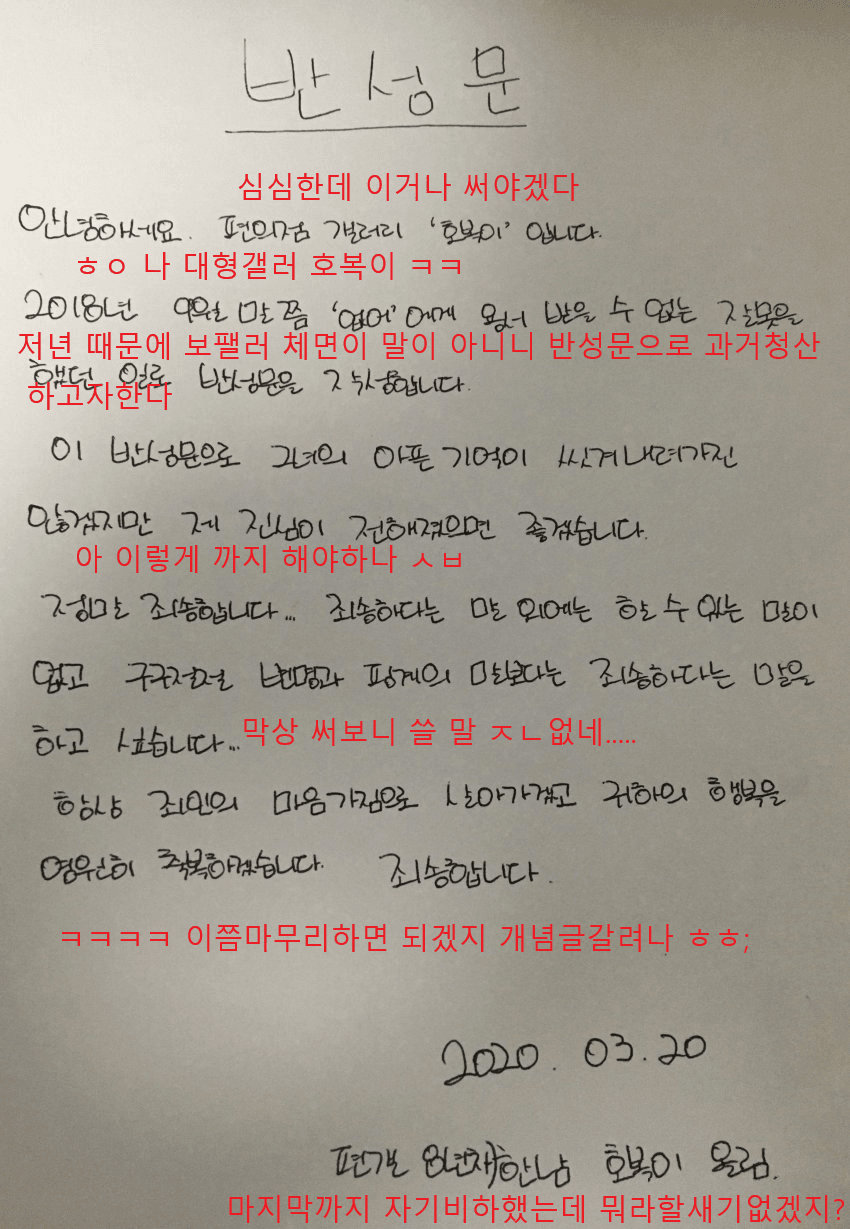 반성문
심심한데 이거나 써야겠다
안녕하세요. 편의점 갤러리 '호복이' 입니다.
ㅎㅇ 나 대형갤러 호복이 ㅋㅋ
2018년 9월 말쯤 '없어'에게 용서 받을 수 없는 잘못을
저년 때문에 보팰러 체면이 말이 아니니 반성문으로 과거청산
했던 일로 반성문을 작성합니다.
하고자한다
이 반성문으로 그녀의 아픈 기억이 씻겨내려가진
않겠지만 제 진심이 전해졌으면 좋겠습니다.
아 이렇게 까지 해야하나 ㅅㅂ
정말 죄송합니다... 죄송하다는 말 외에는 할 수 있는 말이
없고 구구절절 변명과 핑계의 말보다는 죄송하다는 말을
하고 싶습니다...
막상 써보니 쓸 말 ㅈㄴ없네.....
항상 죄인의 마음가짐으로 살아가겠고 귀하의 행복을
영원히 축복하겠습니다. 죄송합니다.
ㅋㅋㅋㅋ 이쯤마무리하면 되겠지 개념글갈려나 ㅎㅎ;
2020.03.20
편갤 8년차한남 호복이 올림.
마지막까지 자기비하했는데 뭐라할새기없겠지?